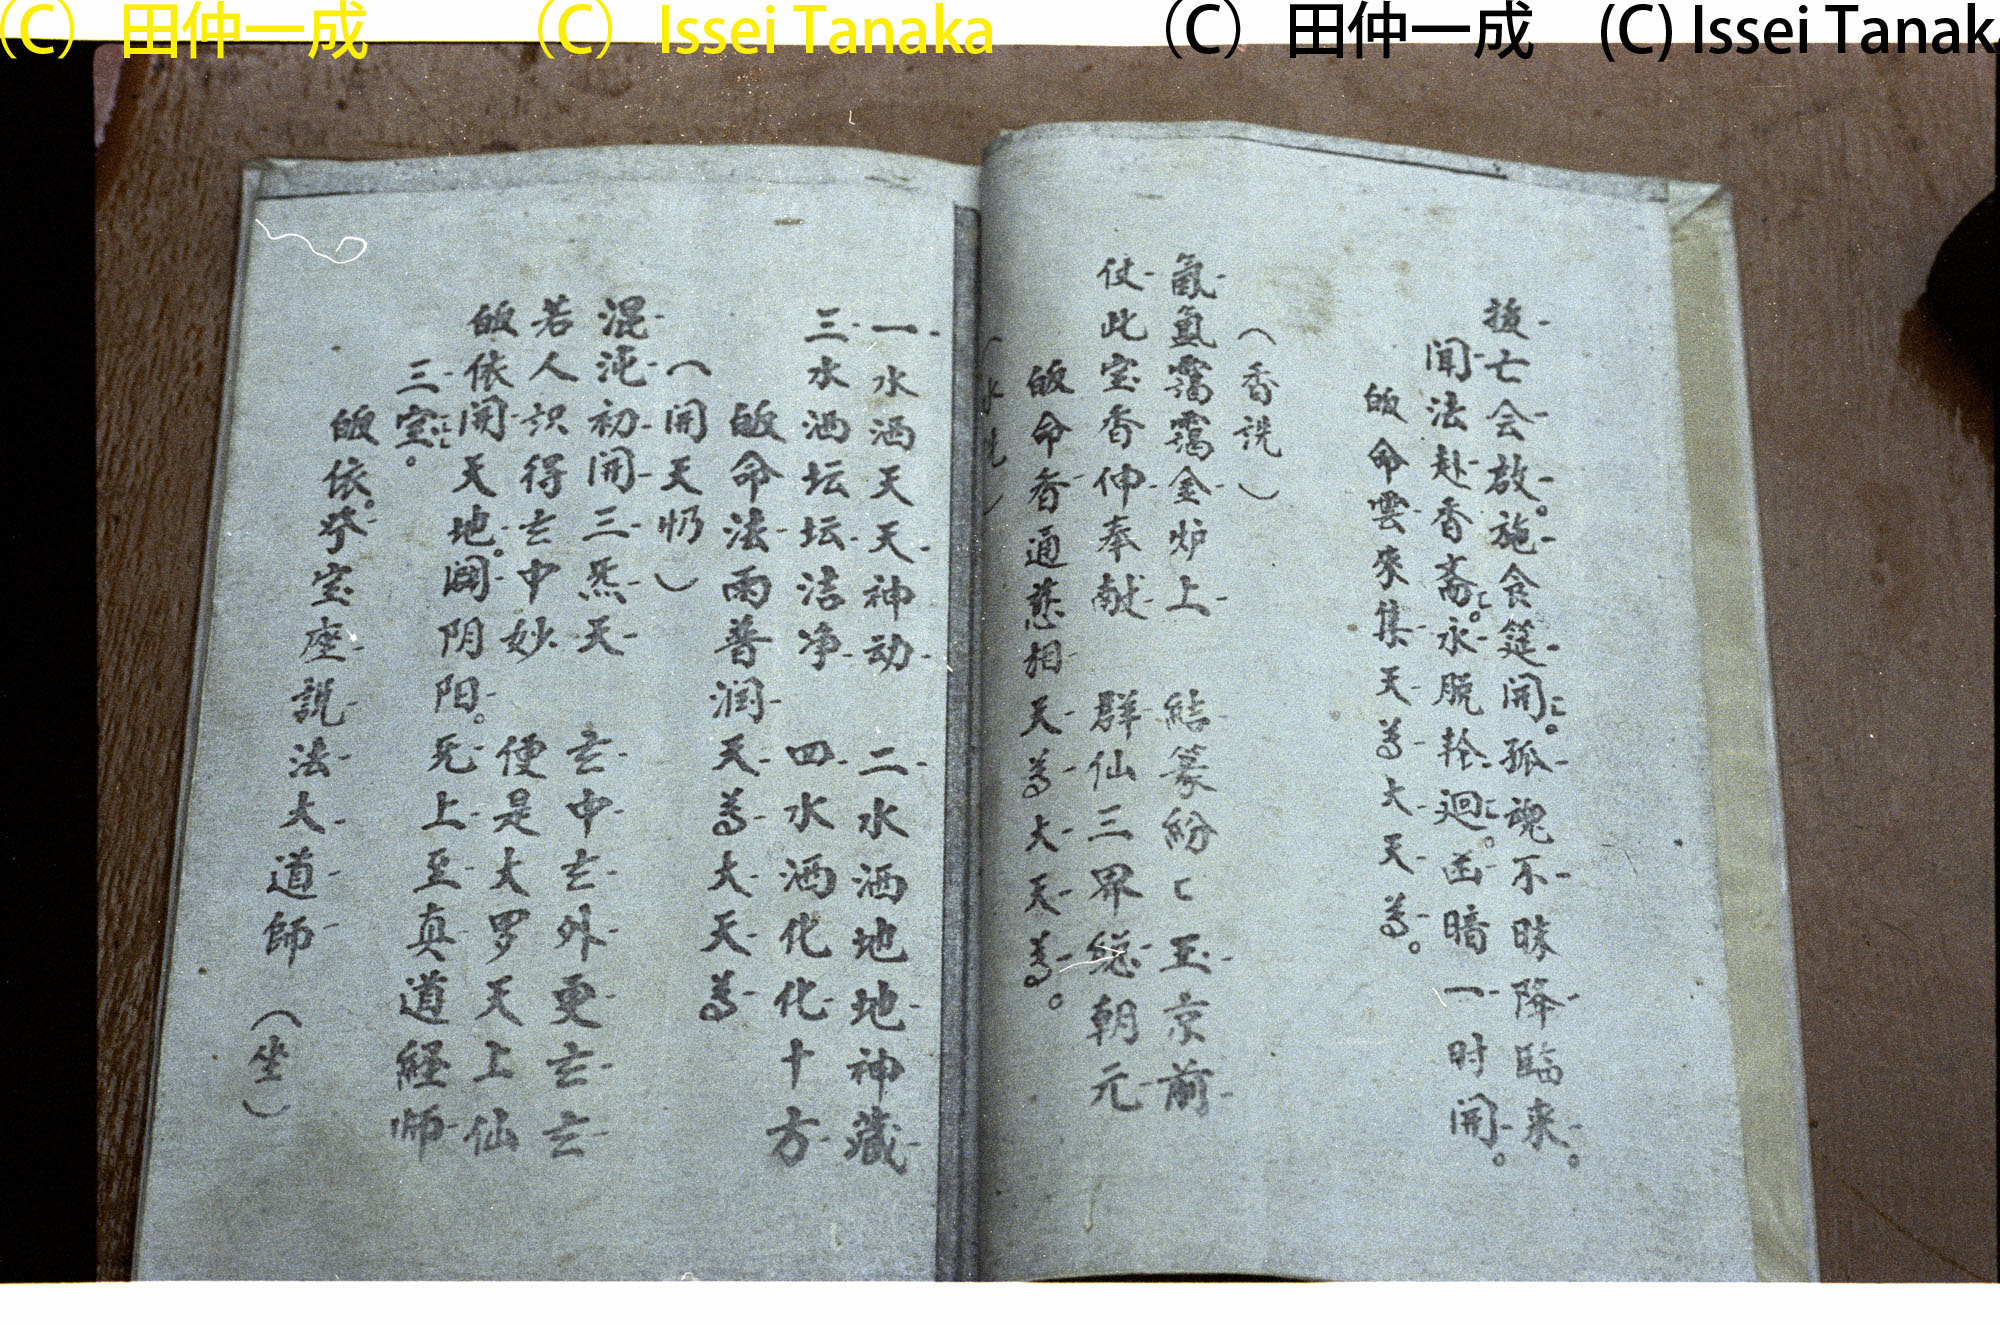 （C）田仲一成　（C）Issei Tanaka　（C）田仲一成　(C) Issei Tanak
㧞亡会啟。施食筵開〻。孤魂不昧降临来。
闻法赴香斋〻。永脱輪迴〻。幽暗一时開。
皈命雲來集天尊大天尊。
（香詵）
氤氲靄靄金炉上　結篆紛〻玉京前
仗此宝香伸奉献　群仙三界總朝元
皈命香通慈相天尊大天尊。
（水詵）
一水洒天天神动　二水洒地地神藏
三水洒坛坛洁净　四水洒化化十方
皈命法雨普润天尊大天尊
（開天忉）
混沌初開三炁天　玄中玄外更玄玄
若人识得玄中妙　便是大罗天上仙
皈依開天地。闢阴阳。无上至真道經师
三宝〻。
皈依。登宝座説法大道師（坐）